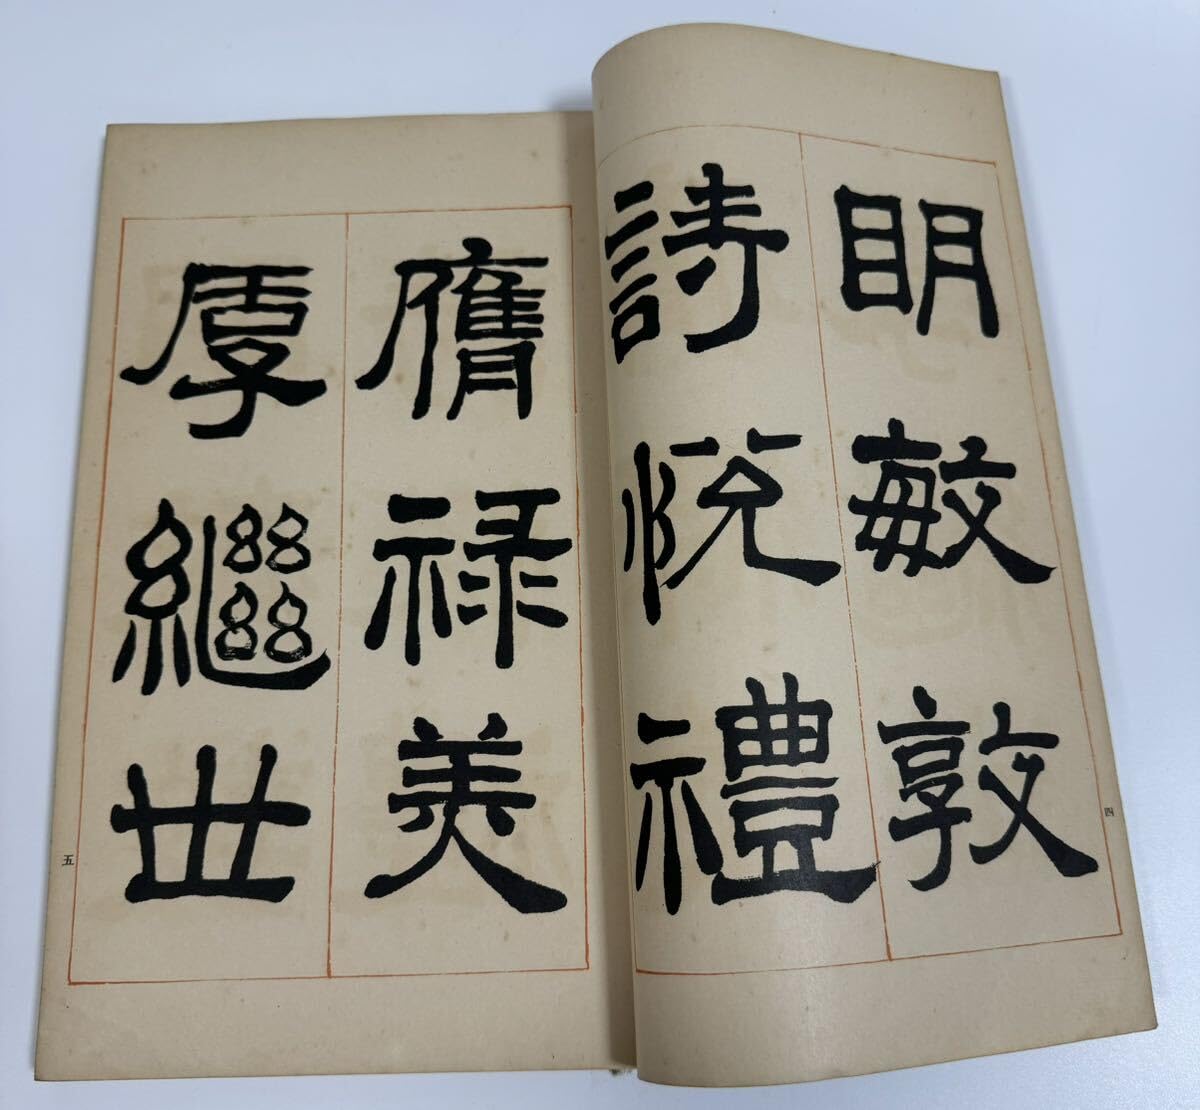 明敏敦
詩悅禮
四
膺祿美
厚繼世
五